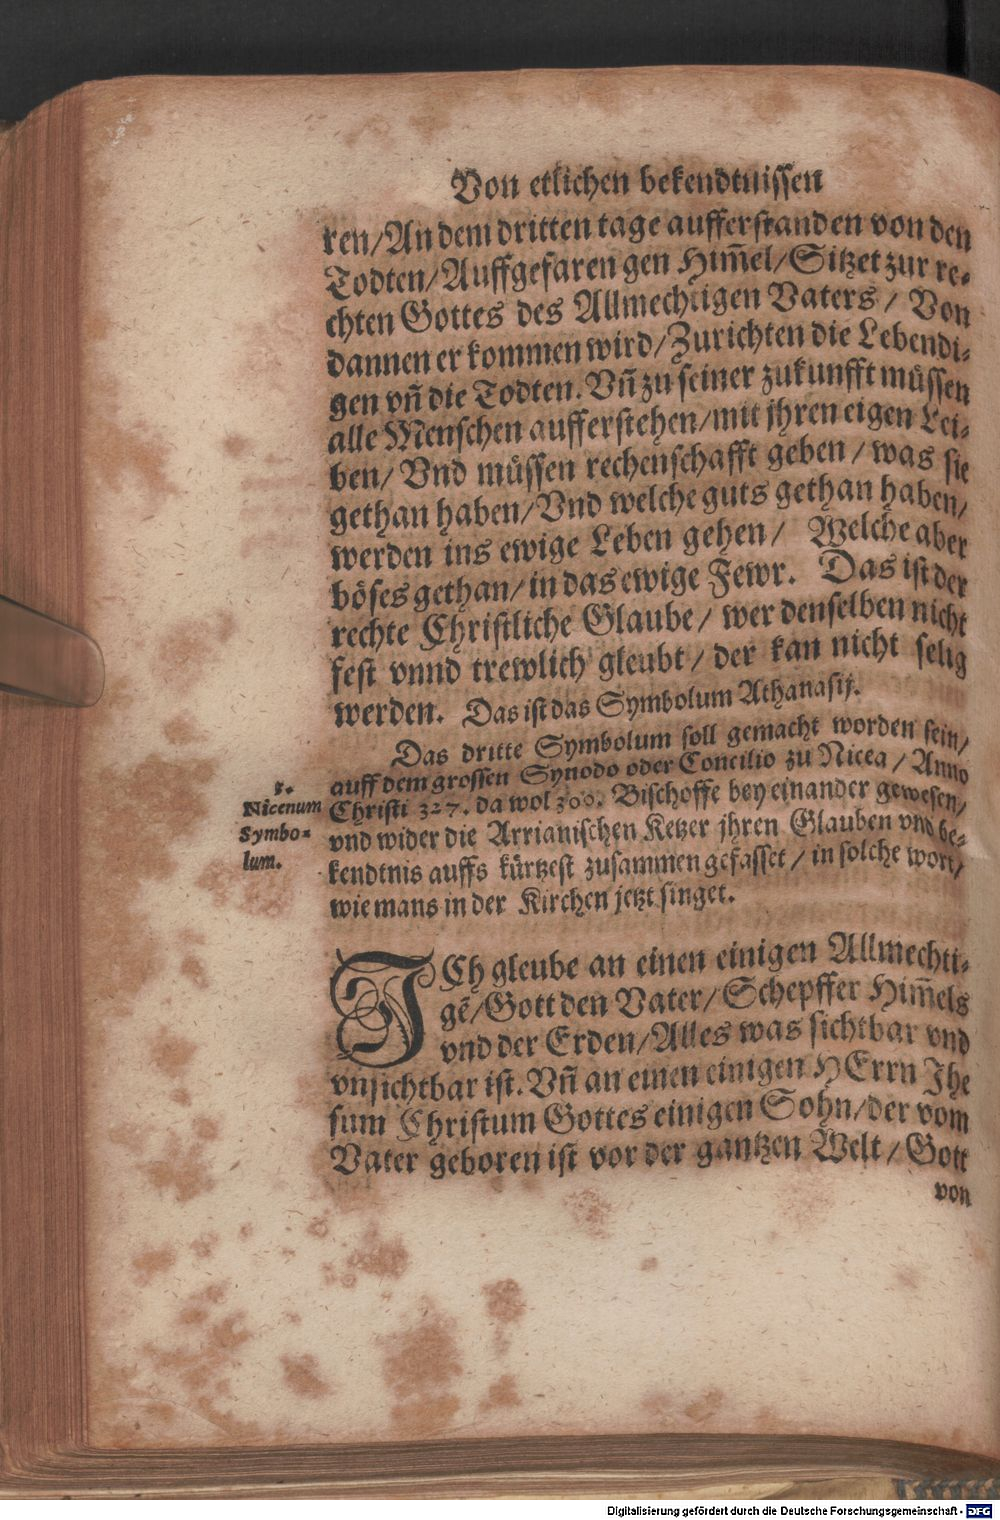 Von etlichen bekendtnissen
ren/An dem dritten tage aufferstanden von den
Todten/Auffgefaren gen Him̃el/Sitzet zur re⸗
chten Gottes des Allmechtigen Vaters/ Von
dannen er kommen wird/Zurichten die Lebendi⸗
gen vn̄ die Todten. Vn̄ zu seiner zukunfft müssen
alle Menschen aufferstehen/mit jhren eigen Lei⸗
ben/ Vnd müssen rechenschafft geben/ was sie
gethan haben/Vnd welche guts gethan haben/
werden ins ewige Leben gehen/ Welche aber
böses gethan/in das ewige Fewr. Das ist der
rechte Christliche Glaube/ wer denselben nicht
fest vnnd trewlich gleubt/ der kan nicht selig
werden. Das ist das Symbolum Athanasij.
Das dritte Symbolum soll gemacht worden sein/
auff dem grossen Synodo oder Concilio zu Nicea/ Anno
Christi 327. da wol 300. Bischoffe bey einander gewesen/
vnd wider die Arrianischen Ketzer jhren Glauben vnd be⸗
kendtnis auffs kürtzest zusammen gefasset/ in solche wort/
wie mans in der Kirchen jetzt singet.
Nicenum
Symbo⸗
lum.
ICh gleube an einen einigen Allmechti⸗
gē/Gott den Vater/Schepffer Him̃els
vnd der Erden/Alles was sichtbar vnd
vnsichtbar ist. Vn̄ an einen einigen HErrn Jhe
sum Christum Gottes einigen Sohn/der vom
Vater geboren ist vor der gantzen Welt/ Gott
von
Digitalisierung gefördert durch die Deutsche Forschungsgemeinschaft - DFG